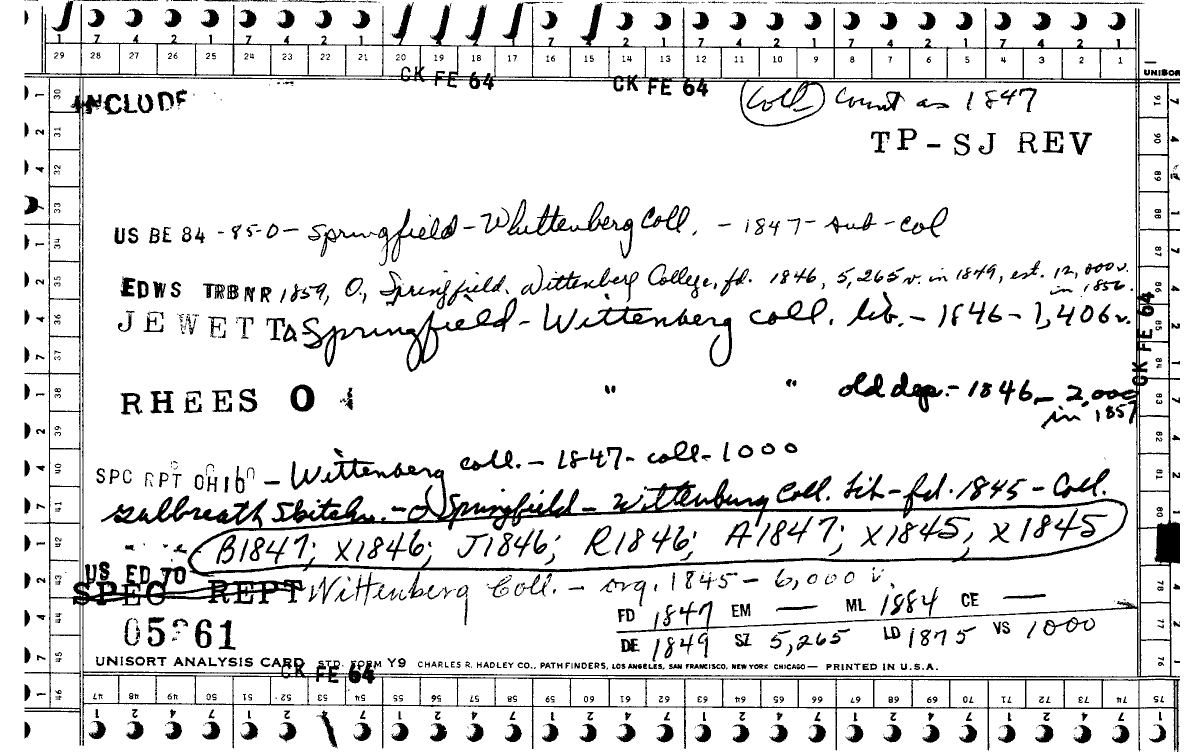 1 7 4 2 1 7 4 2 1 7 4 2 1 7 4 2 1 7 4 2 1 7 4 2 1 7 4 2 1
29 28 27 26 25 24 23 22 21 20 19 18 17 16 15 14 13 12 11 10 9 8 7 6 5 4 3 2 1
CK FE 64 CK FE 64 UNISOR
INCLUDE Coll Count as 1847
TP-SJ REV
US BE 84-85-O- Springfield-Whittenberg Coll. - 1847- sub-col
EDWS TRBNR 1859, O., Springfield. Wittenberg College, fd. 1846, 5,265 v. in 1849, est. 12,000 v.
in 1856.
JEWETT O Springfield - Wittenberg coll. lib. - 1846 - 1,406 v.
RHEES O " " old dep. - 1846 - 2,000
in 1857
SPC RPT OHIO - Wittenberg coll. - 1847 - coll - 1000
Galbreath Sktchs. - O Springfield - Wittenburg Coll. Lib - fd. 1845 - Coll.
B1847; X1846; J1846; R1846; A1847; X1845; X1845
US ED 70
SPEC REPT Wittenberg Coll. - org. 1845 - 6,000 v.
FD 1847 EM — ML 1884 CE —
DE 1849 SZ 5,265 LD 1875 VS 1000
UNISORT ANALYSIS CARD STD. FORM Y9 CHARLES R. HADLEY CO., PATHFINDERS, LOS ANGELES, SAN FRANCISCO, NEW YORK CHICAGO — PRINTED IN U.S.A.
CK FE 64
CK FE 64
30 31 32 33 34 35 36 37 38 39 40 41 42 43 44 45 46
47 48 49 50 51 52 53 54 55 56 57 58 59 60 61 62 63 64 65 66 67 68 69 70 71 72 73 74 75
91 90 89 88 87 86 85 84 83 82 81 80 78 77 76